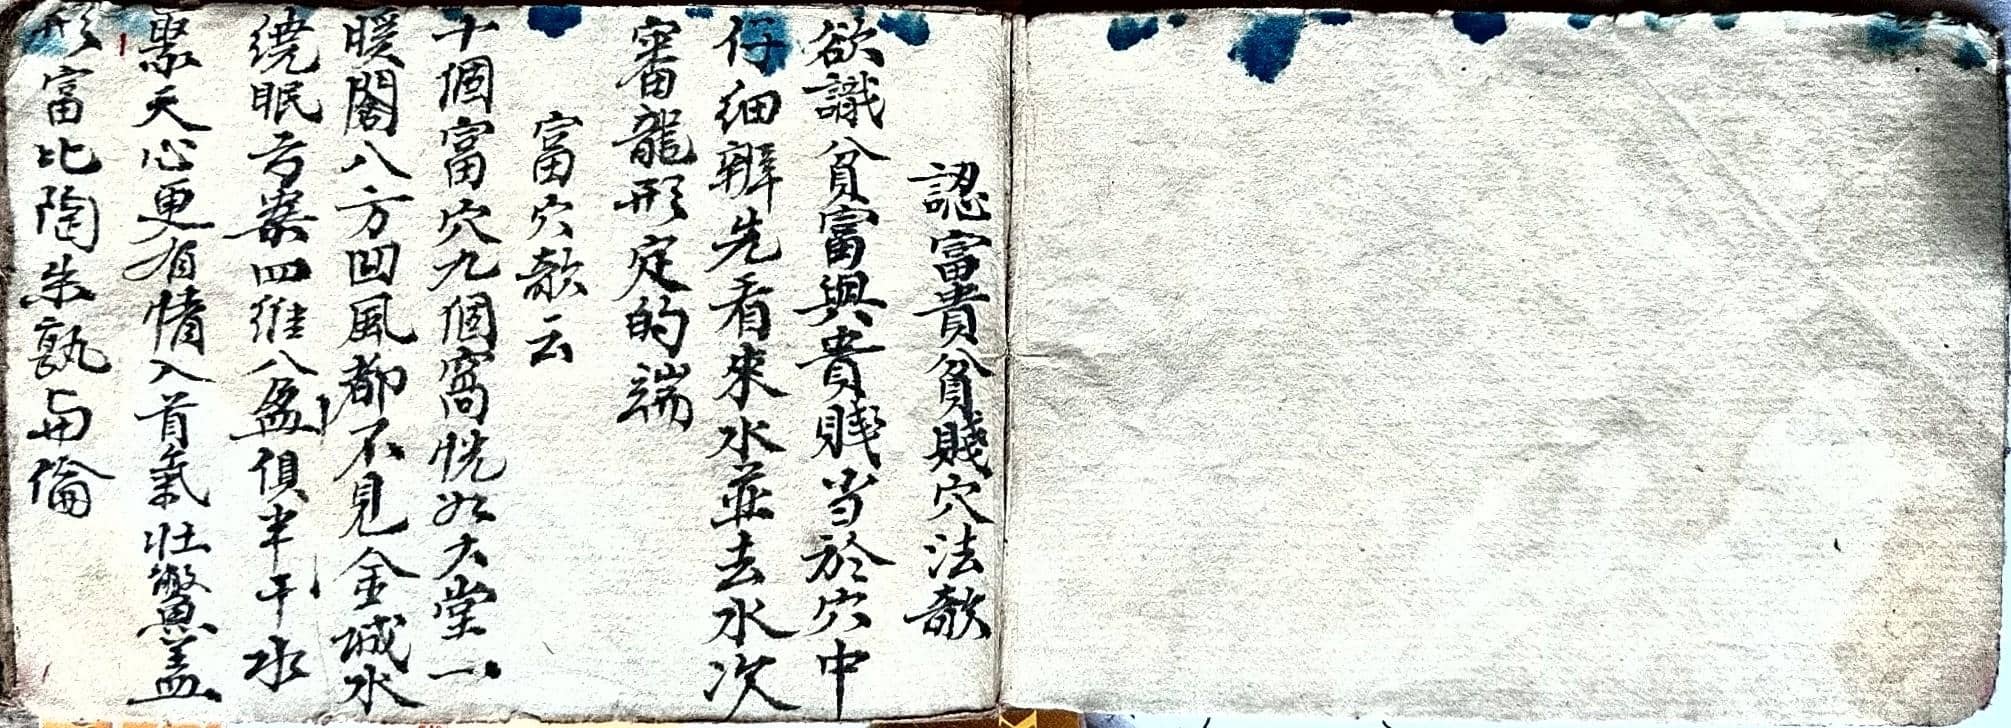 認富貴貧賤穴法歌
欲識貧富與貴賤当於穴中
仔细辨先看來水並去水次
審龍形定的端
富穴歌云
十個富穴九個窩恍如大堂一
暖閣八方凹風都不見金城水
繞眠弓案四維八盈俱半干水
聚天心更有情入首氣壯鱉盖
形富比陶朱孰与倫